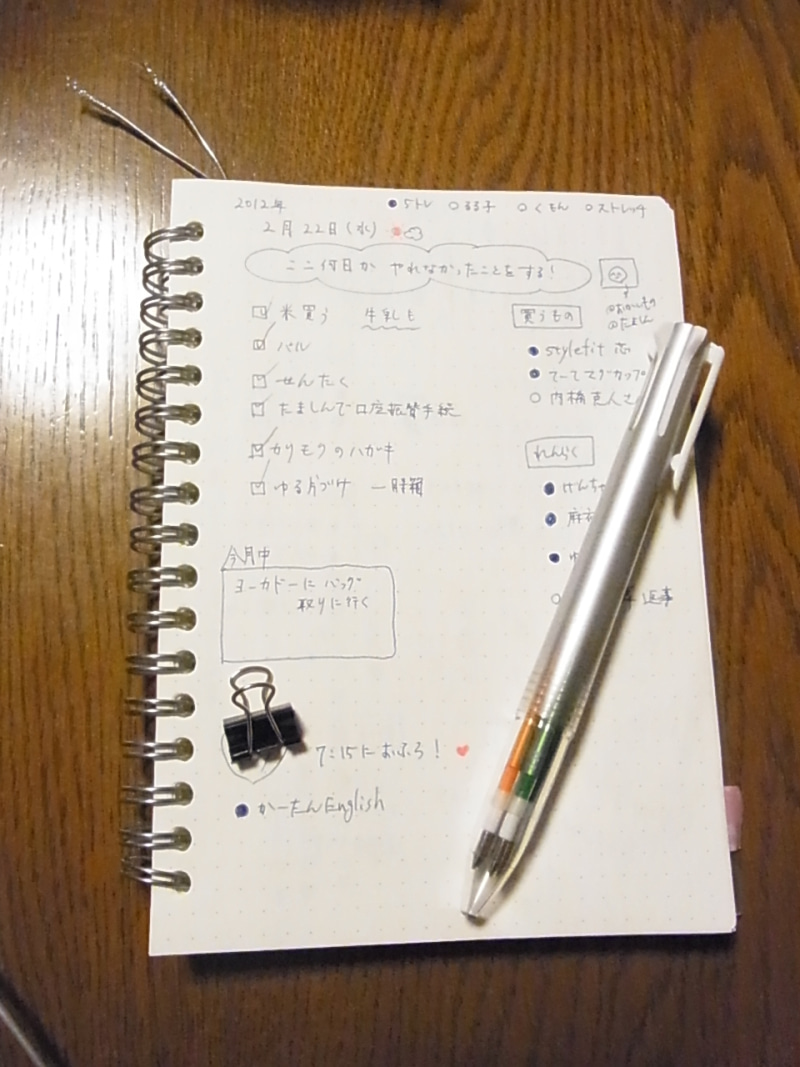 2012年
● 5トレ ○ るる子 ○ くもん ○ ストレッチ
2月22日(水)
ここ何日か やれなかったことをする!
米買う 牛乳も
パル
せんたく
たましんで口座振替手続
カリモクのハガキ
ゆる片づけ 一時間
買うもの
● stylefit 芯
● てーてマグカップ
○ 内橋克人さ
れんらく
● けんちゃ
● 麻衣
● ゆ
○ 返事
今月中
ヨーカドーに バッグ
取りに行く
7:15におふろ!
● かーたんEnglish